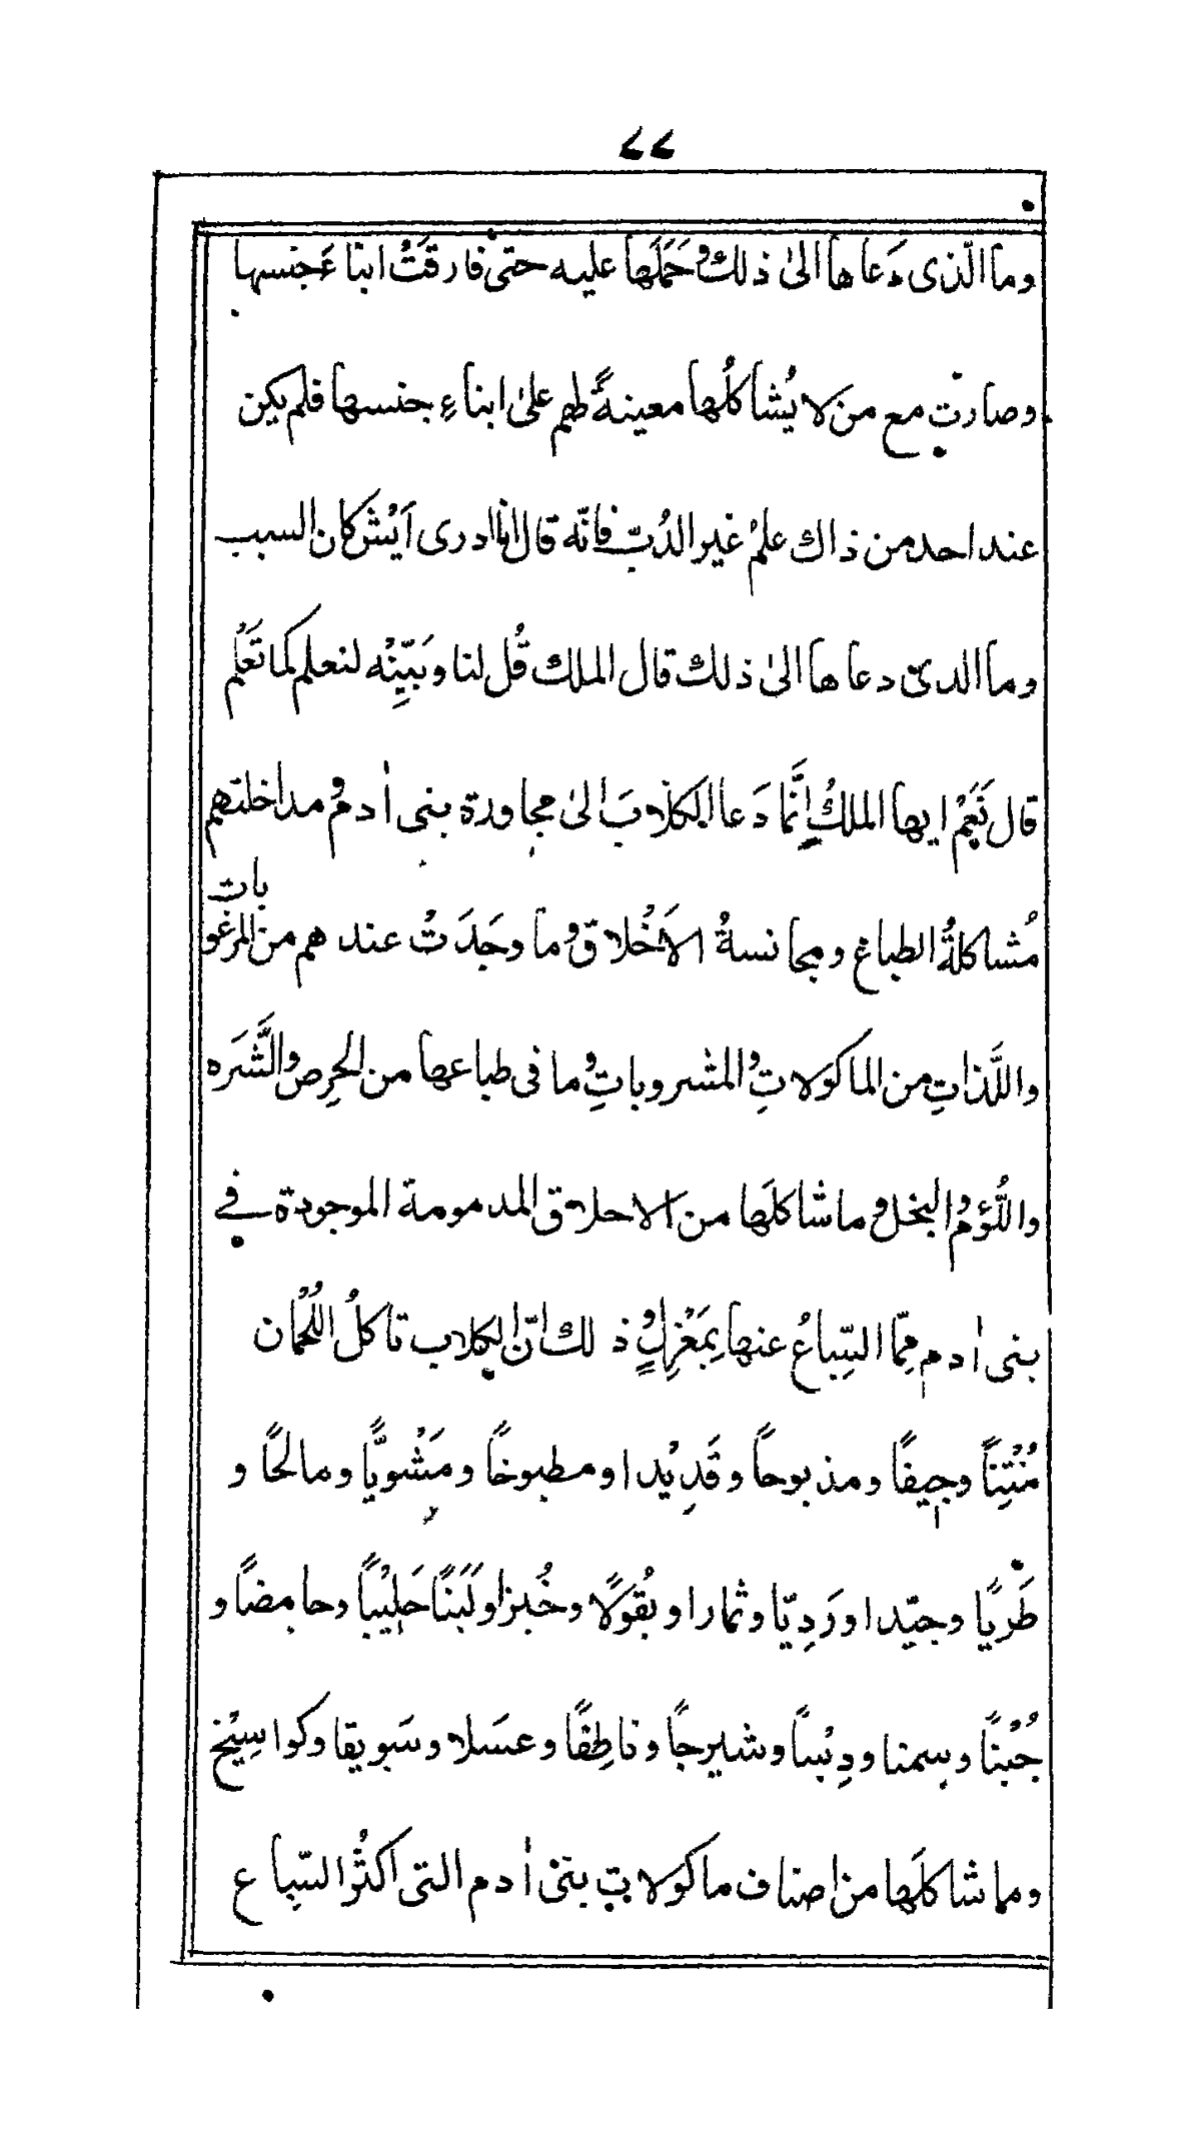 ٧٧
وما الّذى دَعاها الىٰ ذلك وحَمَلَها عليه حتى فارقَتْ ابناءَ جنسها
وصارت مع من لا يُشاكلُها معينةً لهم علىٰ ابناءِ جنسها فلم يكن
عند احد من ذاك علمُ غير الدُبّ فانّه قال انا ادرى اَيْش كان السبب
وما الدى دعاها الىٰ ذلك قال الملك قُل لنا وبَيِّنْه لنعلم كما تَعْلم
قال نَعَمْ ايها الملكُ اِنَّما دَعا الكلابَ الىٰ مجاورة بنى اٰدم ومداخلتهم
مُشاكلةُ الطباع ومجانسةُ الاَخْلاق وما وجَدَتْ عندهم من المرغوبات
واللَّذاتِ من الماكولاتِ والمشروباتِ وما فى طباعها من الحِرص والشَّرَه
واللُّؤم والبخل وما شاكلَها من الاحلاق المدمومة الموجودة في
بنى اٰدم مِمّا السِّباعُ عنها بِمَعْزِلٍ وذلك انّ الكلاب تاكلُ اللُّحْمان
مُنْتِنًا وجِيفًا ومذبوحاً وقَدِيْدا ومطبوخًا ومَشْويًّا ومالحًا و
طَريًا وجيّدا ورَدِيّا وثمارا وبُقولًا وخُبزا ولَبَنًا حَلِيْبًا وحامضًا و
جُبْنًا وسمنا ودِبْساً وشيرجًا وناطِفًا وعسَلا وسَويقا وكواسِيْخ
وما شاكلَها من اصناف ماكولات بنى اٰدم التى اكثُر السّباع